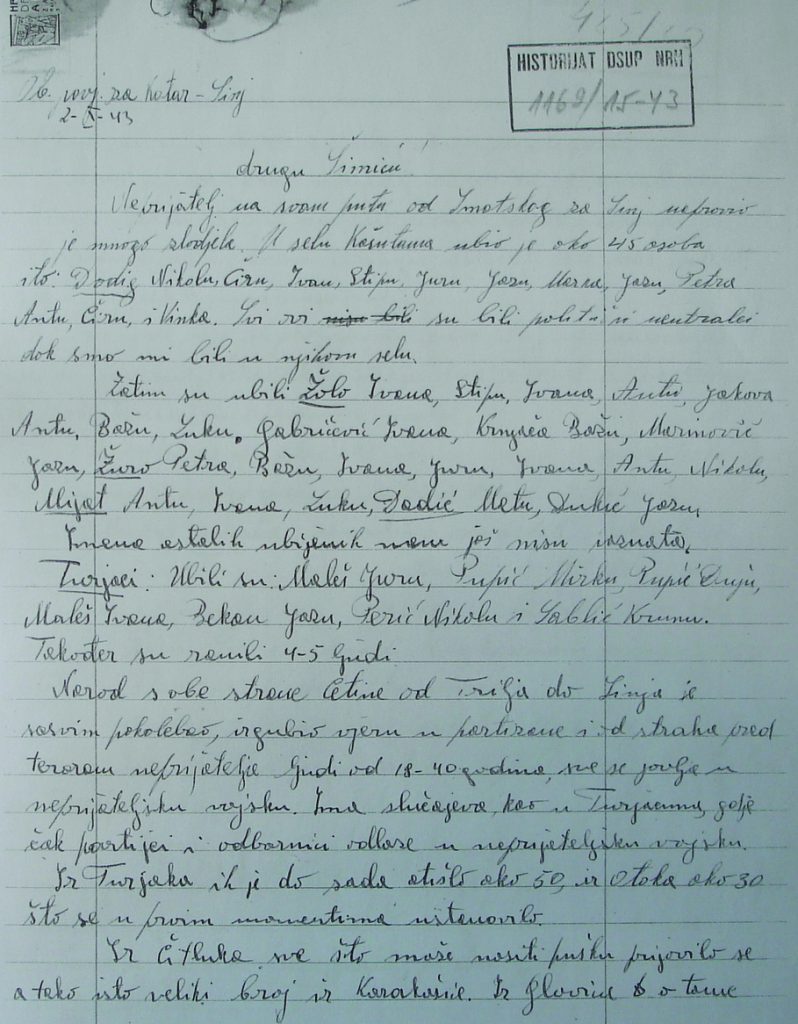 HISTORIJAT DSUP NRH
1169/15-43
Ob. povj. za Kotar - Sinj
2-X-43
drugu Šimiću!
Neprijatelj na svom putu od Imotskog za Sinj nepravio
je mnogo zlodjela. U selu Košutama ubio je oko 45 osoba
i to: Dodig Nikolu, Ćiru, Ivan, Stipu, Juru, Jozu, Marna, Jozu, Petra
Antu, Ćiru, i Vinka. Svi ovi nisu bili su bili politički neutralci
dok smo mi bili u njihovu selu.
Zatim su ubili Žolo Ivana, Stipu, Ivana, Antu, Jakova
Antu, Božu, Luku, Gabričević Ivana, Krnjača Božu, Marinović
Jozu, Žuro Petra, Božu, Ivana, Juru, Ivana, Antu, Nikolu,
Mijat Antu, Ivana, Luku, Dadić Matu, Dukić Jozu,
Imena ostalih ubijenih nam još nisu poznata.
Turjaci: Ubili su: Maleš Juru, Pupić Mirku, Pupić Duju,
Maleš Ivana, Bekan Jozu, Perić Nikolu i Sablić Krunu.
Također su ranili 4-5 ljudi.
Narod s obe strane Cetine od Trilja do Sinja je
sasvim pokolebao, izgubio vjeru u partizane i od straha pred
terorom neprijatelja ljudi od 18-40 godina, sve se javlja u
neprijateljsku vojsku. Ima slučajeva, kao u Turjacima, gdje
čak partijci i odbornici odlaze u neprijateljsku vojsku.
Iz Turjaka ih je do sada otišlo oko 50, iz Otoka oko 30
što se u prvim momentima ustanovilo.
Iz Čitluka sve što može nositi pušku prijavilo se
a tako isto veliki broj iz Karakašice. Iz Glavica o tome